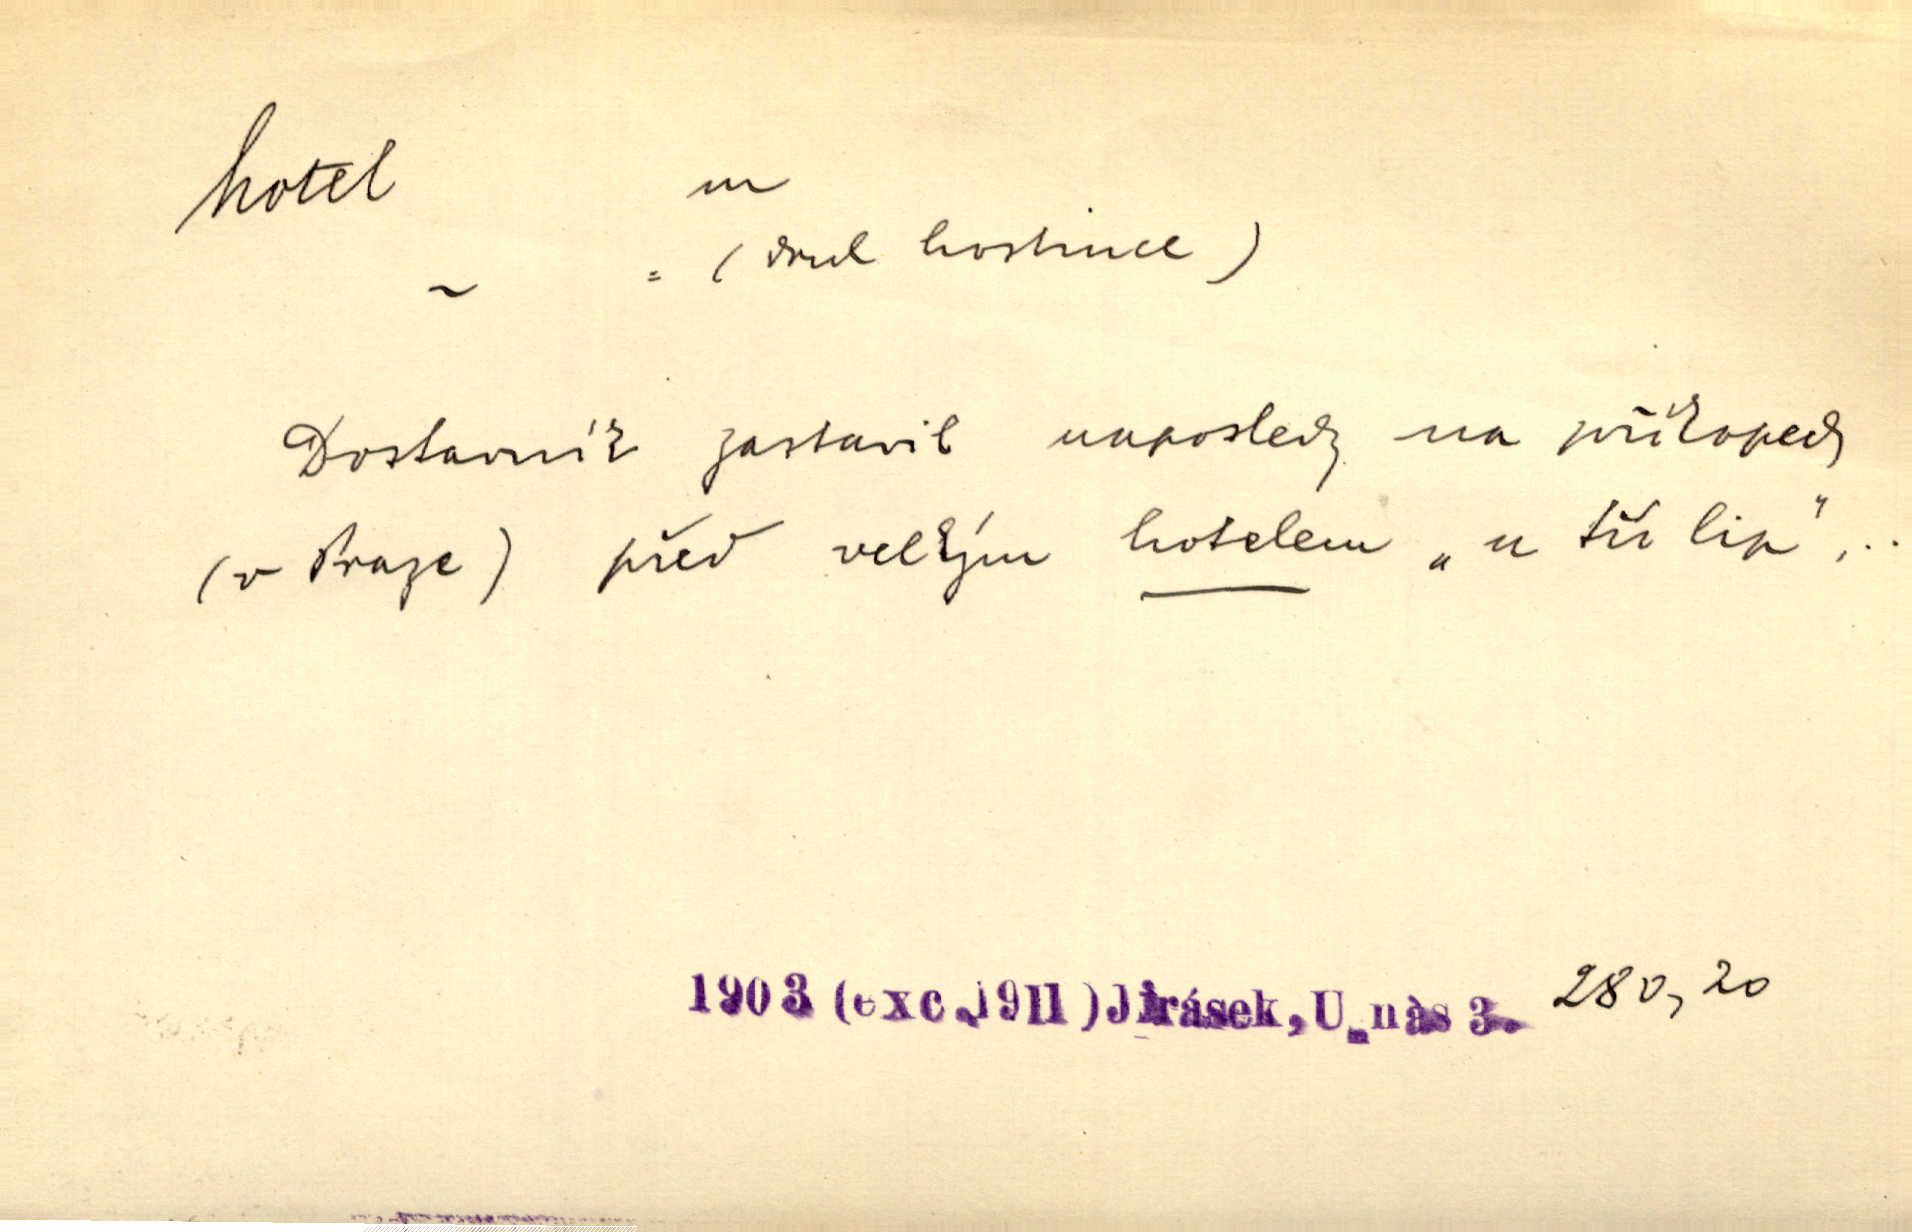 hotel m
~ = (druh hostince)
Dostavník zastavil naposledy na příkopech
(v Praze) před velkým hotelem „u tří lip",..
1903 (exc.1911) Jirásek, U nás 3. 280, 20